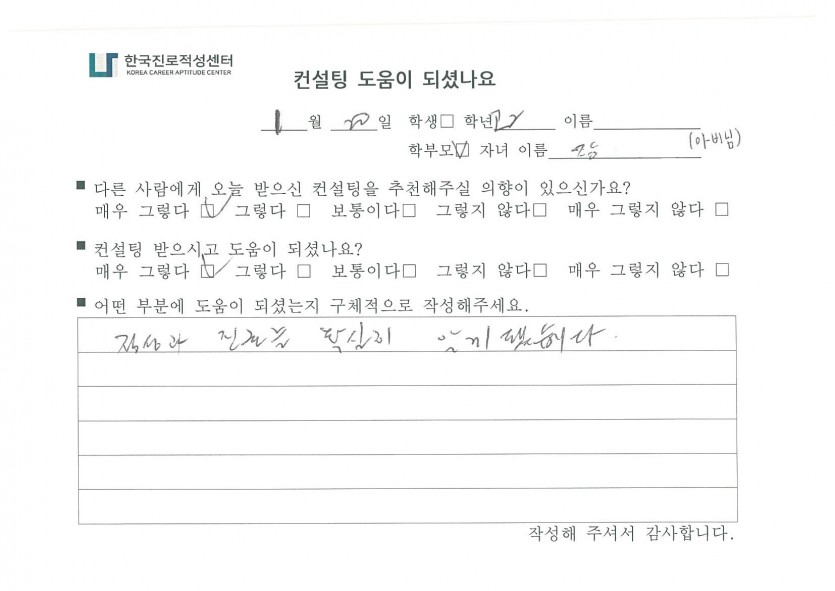 한국진로적성센터
KOREA CAREER APTITUDE CENTER
컨설팅 도움이 되셨나요
1 월 20 일 학생□ 학년 이름
학부모☑ 자녀 이름 (아버님)
■ 다른 사람에게 오늘 받으신 컨설팅을 추천해주실 의향이 있으신가요?
매우 그렇다 ☑ 그렇다 □ 보통이다□ 그렇지 않다□ 매우 그렇지 않다 □
■ 컨설팅 받으시고 도움이 되셨나요?
매우 그렇다 ☑ 그렇다 □ 보통이다□ 그렇지 않다□ 매우 그렇지 않다 □
■ 어떤 부분에 도움이 되셨는지 구체적으로 작성해주세요.
적성과 진로를 확실히 알게 됐습니다.
작성해 주셔서 감사합니다.